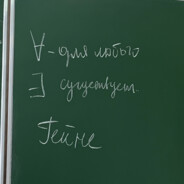 ∀ - для любого
∃ существует.
Гейне